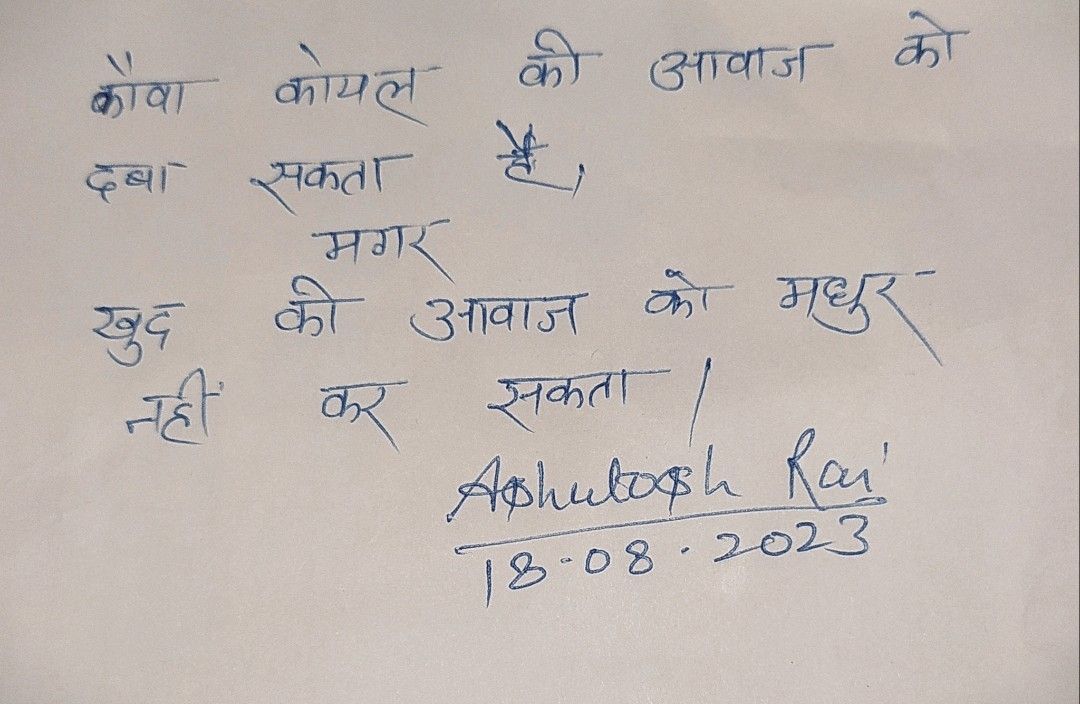 कौवा कोयल की आवाज को
दबा सकता है,
मगर
खुद की आवाज को मधुर
नहीं कर सकता |
Ashutosh Rai
18-08.2023